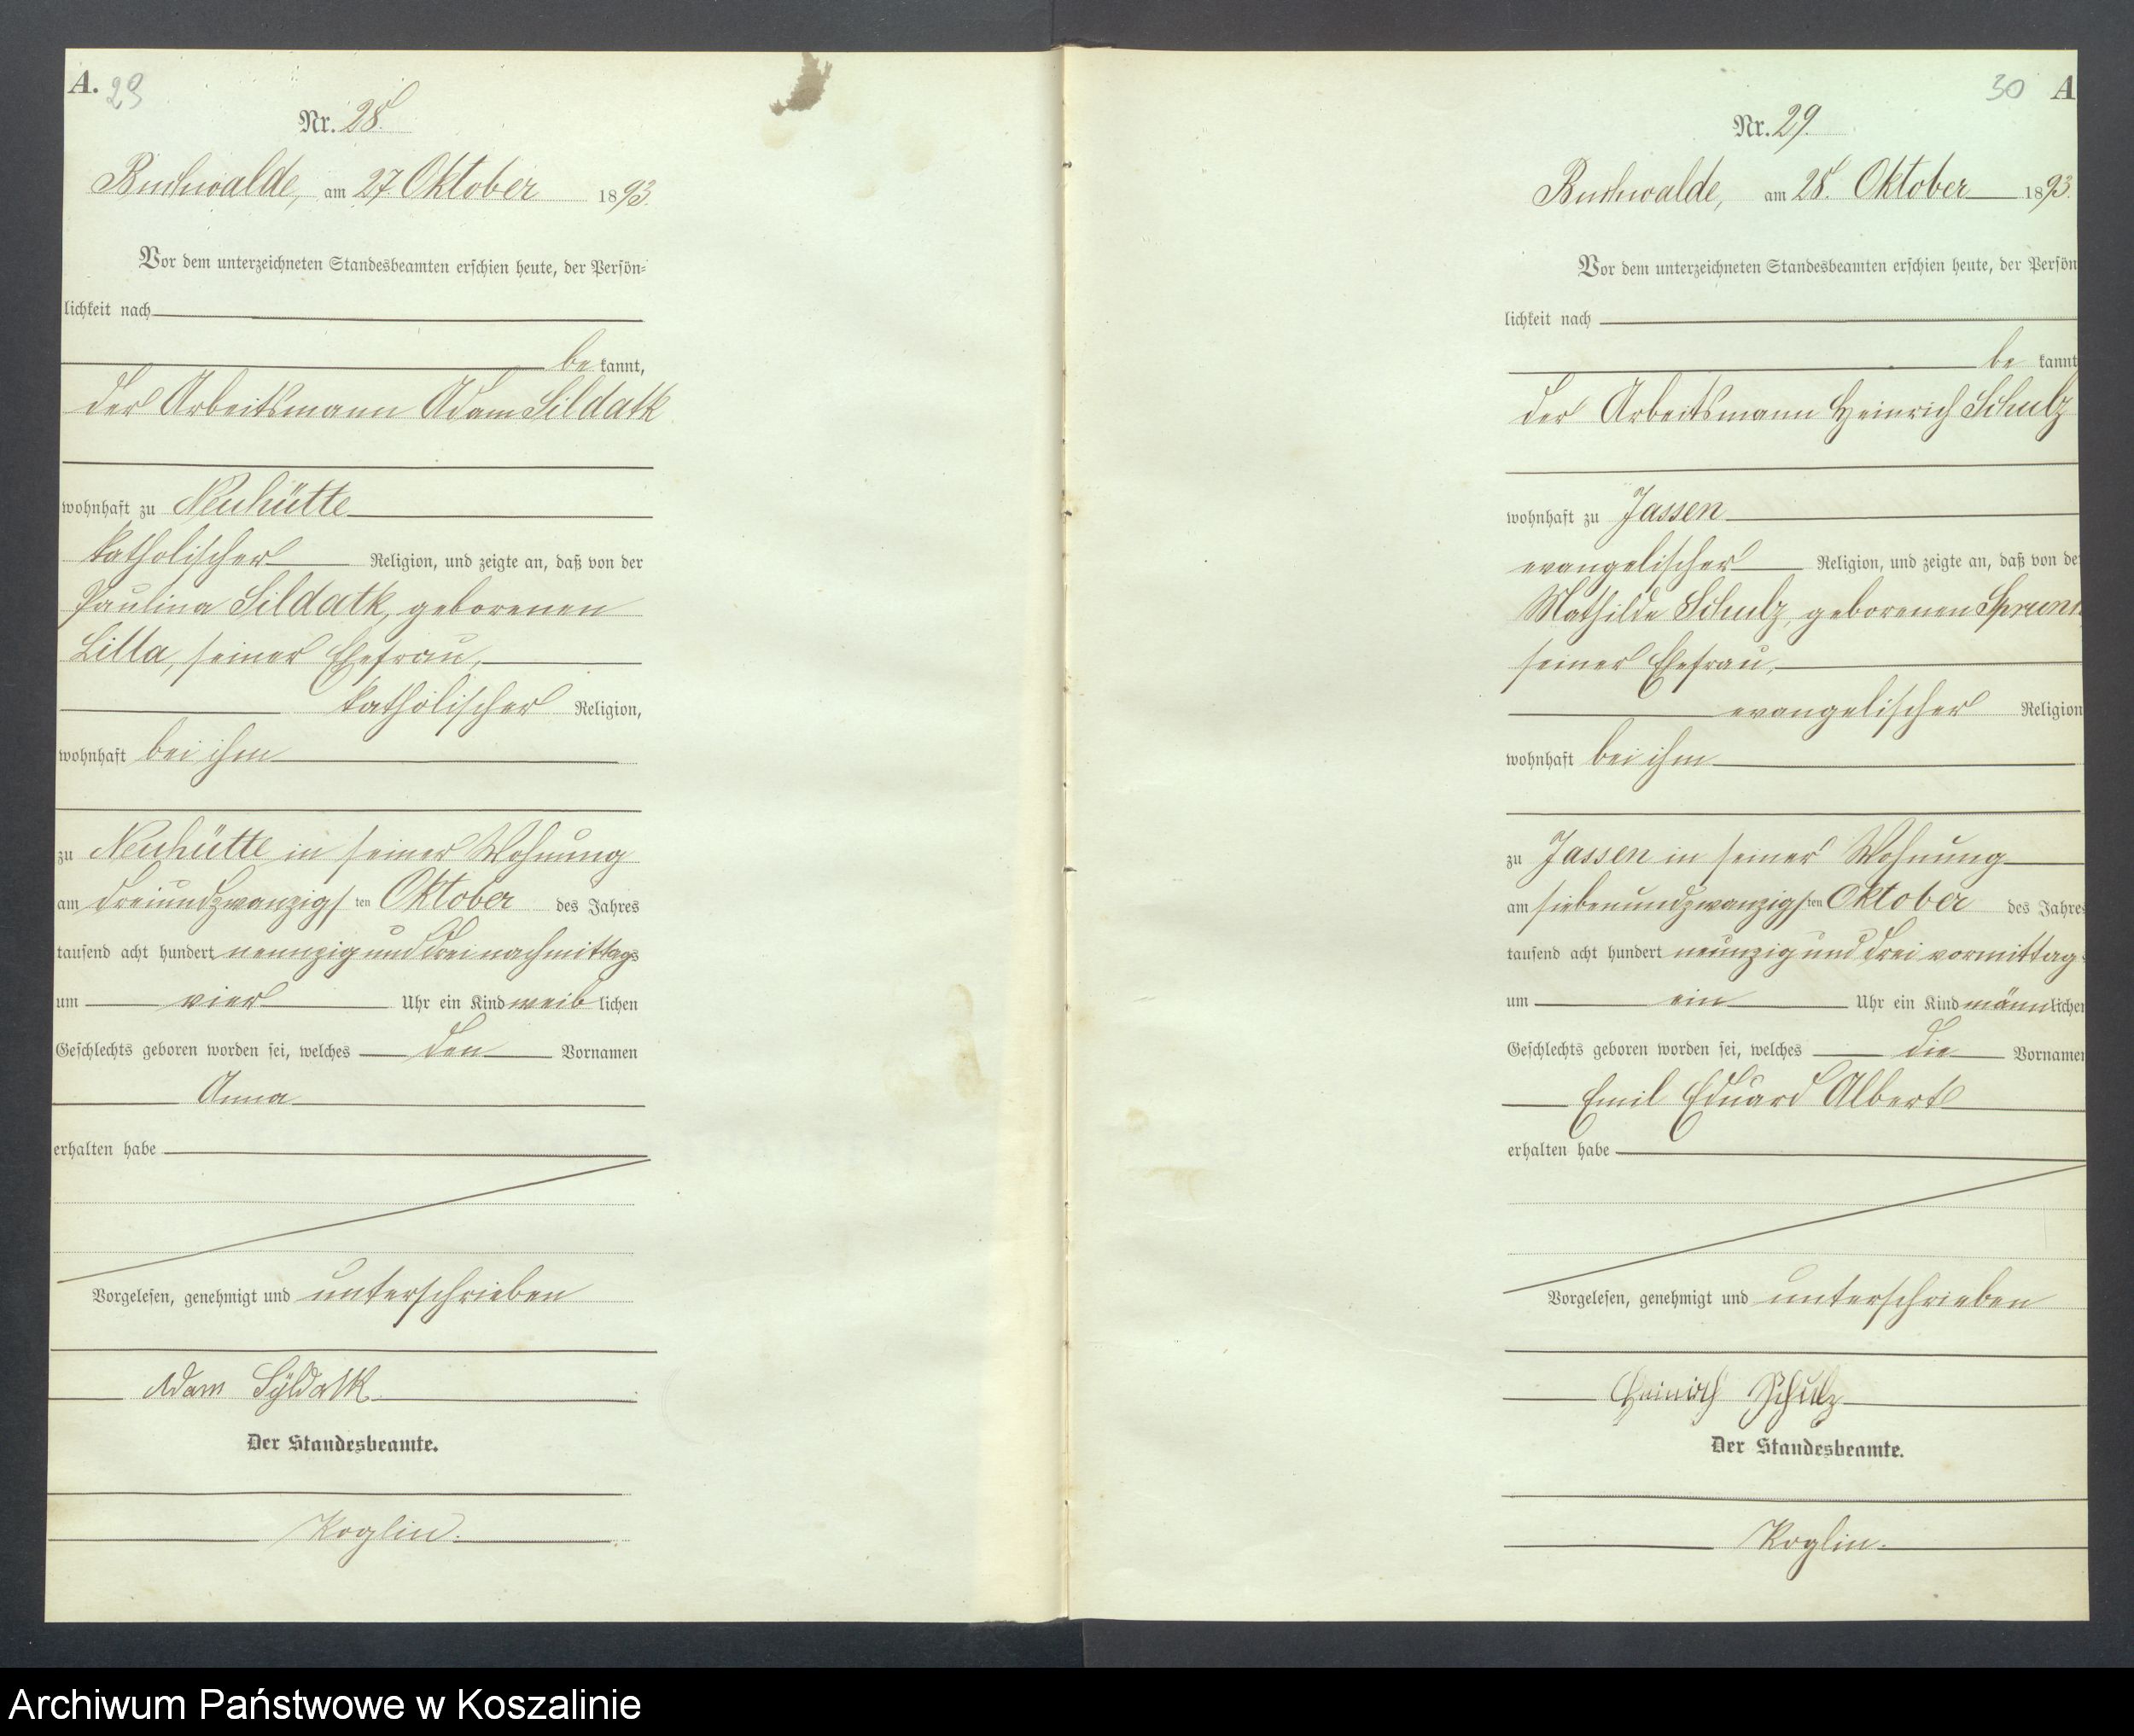 A. 29
Nr. 28.
Buchwalde, am 27 Oktober 1893.
Vor dem unterzeichneten Standesbeamten erschien heute, der Persön-
lichkeit nach
be kannt,
der Arbeitsmann Adam Sildatk
wohnhaft zu Neuhütte
katholischer Religion, und zeigte an, daß von der
Paulina Sildatk, geborenen
Litta, seiner Ehefrau,
katholischer Religion,
wohnhaft bei ihm
zu Neuhütte in seiner Wohnung
am dreiundzwanzigsten Oktober des Jahres
tausend acht hundert neunzig und drei nachmittags
um vier Uhr ein Kind weiblichen
Geschlechts geboren worden sei, welches den Vornamen
Anna
erhalten habe
Vorgelesen, genehmigt und unterschrieben
Adam Syldatk
Der Standesbeamte.
Koglin.
30 A
Nr. 29.
Buchwalde, am 28. Oktober 1893.
Vor dem unterzeichneten Standesbeamten erschien heute, der Persön
lichkeit nach
be kannt
der Arbeitsmann Heinrich Schulz
wohnhaft zu Jassen
evangelischer Religion, und zeigte an, daß von de
Mathilde Schulz, geborenen
seiner Ehefrau,
evangelischer Religion
wohnhaft bei ihm
zu Jassen in seiner Wohnung
am siebenundzwanzigsten Oktober des Jahres
tausend acht hundert neunzig und drei vormittag
um ein Uhr ein Kind männlichen
Geschlechts geboren worden sei, welches die Vornamen
Emil Eduard Albert
erhalten habe
Vorgelesen, genehmigt und unterschrieben
Heinrich Schulz
Der Standesbeamte.
Koglin.
Archiwum Państwowe w Koszalinie